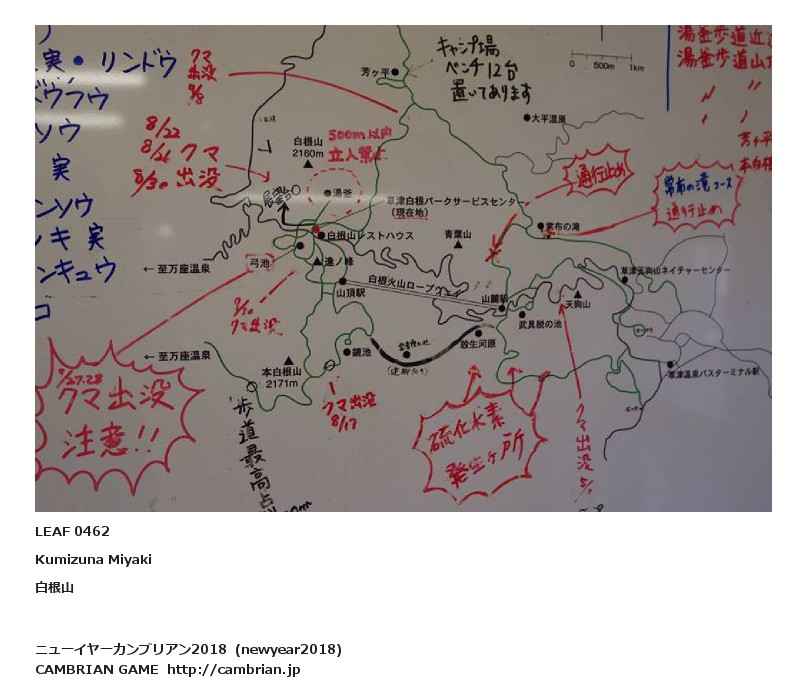 実・リンドウ
クマ
出没
9/8
芳ヶ平
キャンプ場
ベンチ12台
置いてあります
0 500m 1km
湯釜歩道近
湯釜歩道山
〃 〃
ソウ
実
ンソウ
ノキ 実
ンキュウ
コ
8/22
8/26 クマ
8/30 出没
白根山
2160m
500m以内
立入禁止
大平湿原
芳ヶ平
本白根
通行止め
常布の滝コース
通行止め
湯釜
草津白根パークサービスセンター
(現在地)
白根山レストハウス
青葉山
常布の滝
← 至万座温泉
弓池
逢ノ峰
白根火山ロープウェイ
草津天狗山ネイチャーセンター
山頂駅
山麓駅
天狗山
武具脱の池
クマ出没
← 至万座温泉
鏡池
殺生河原
本白根山
2171m
草津温泉バスターミナル駅
9/27.28
クマ出没
注意!!
歩道最高点
クマ出没
8/17
硫化水素
発生ヶ所
クマ出没
LEAF 0462
Kumizuna Miyaki
白根山
ニューイヤーカンブリアン2018 (newyear2018)
CAMBRIAN GAME http://cambrian.jp